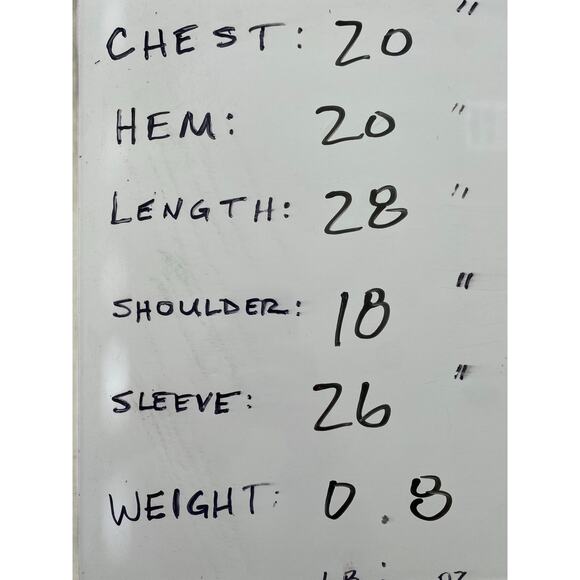 CHEST: 20"
HEM: 20"
LENGTH: 28"
SHOULDER: 18"
SLEEVE: 26"
WEIGHT: 0.8